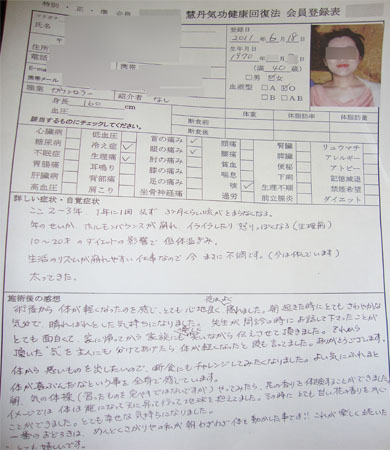 特別・正・準 会員
慧丹気功健康回復法 会員登録表
フリガナ
氏名
住所
電話
携帯
E-mail
携帯メール
職業 カウンセラー 紹介者 なし
登録日
2011年6月18日
生年月日
1970
(満 40 歳)
□男 ☑女
血液型 □A ☑O
□B □AB
身長 160 cm
体重 体脂肪量 体脂肪量
断食前
断食後
該当するものにチェックしてください。
心臓病 低血圧 首の痛み ✓ 頭痛 腎臓 リュウマチ
糖尿病 冷え症 ✓ 肩の痛み ✓ 腰痛 膵臓 アレルギー
不眠症 生理痛 ✓ 肘の痛み 貧血 便秘 アトピー
胃腸病 耳鳴り 膝の痛み 喘息 下痢 記憶減退
肝臓病 背部痛 足の痛み 咳 生理不順 禁煙希望
高血圧 肩こり 坐骨神経痛 過労 前立腺炎 ダイエット
詳しい症状・自覚症状
ここ2~3年、1年に1回 咳が 3か月くらい続いてとまらなくなる。
年のせいか、ホルモンバランスが崩れ、イライラしたり 怒りっぽくなる(生理前)
10~20才のダイエットの影響で 低体温ぎみ。
生活のリズムが崩れやすい仕事なので 今まさに不調です。(今は休んでいます)
太ってきた。
施術後の感想
術後から 体が軽くなったのを感じ、とても心地良く 眠れました。朝 起きた時にとてもさわやかな
気分で、晴ればれとした気持ちになりました。先生が問診の時にお話して下さったことが
とても面白くて、家に帰ってから 家族にも笑いながら伝えさせて頂きました。それから
頂いた"気"を主人にも分けてあげたら 体が軽くなったと 彼も言ってました。ありがとうございます。
体から 悪いものを出したいので、断食にもチャレンジしてみたくなりました。
体が喜ぶんだなという事を全身で感じています。
朝、気の体操
花の香りを体験することができました。
イメージでは 体は龍になって天に昇って行って地球を抱えました。
ことができました。とても幸せな気持ちになりました。
一番のおどろきは、めんどくさがりやの私が 朝 わずかでも 体を動かした事です!! これが 楽しく続いた
嬉しいです。